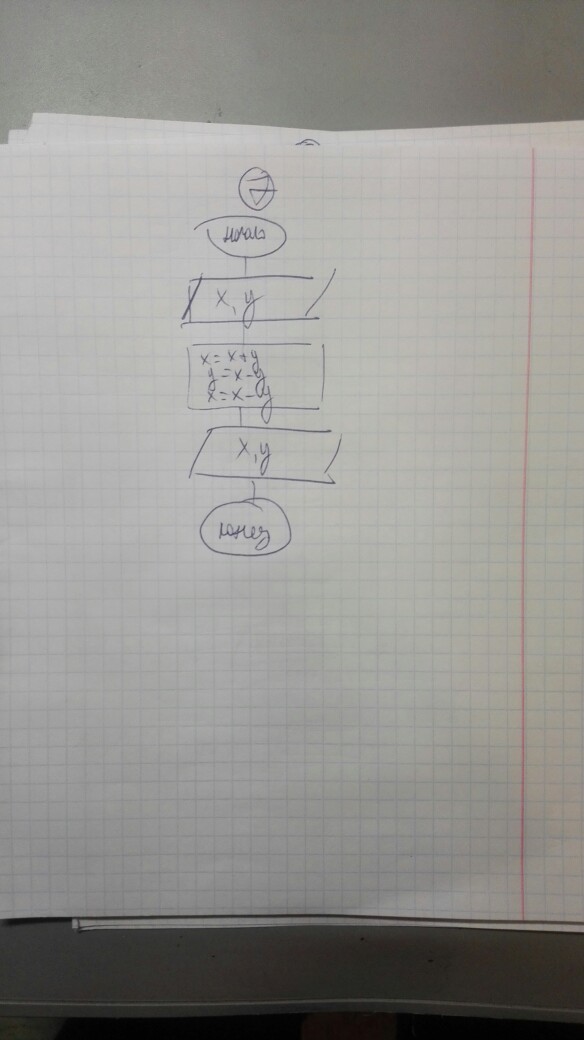 7
начало
x, y
x = x + y
y = x - y
x = x - y
x, y
конец